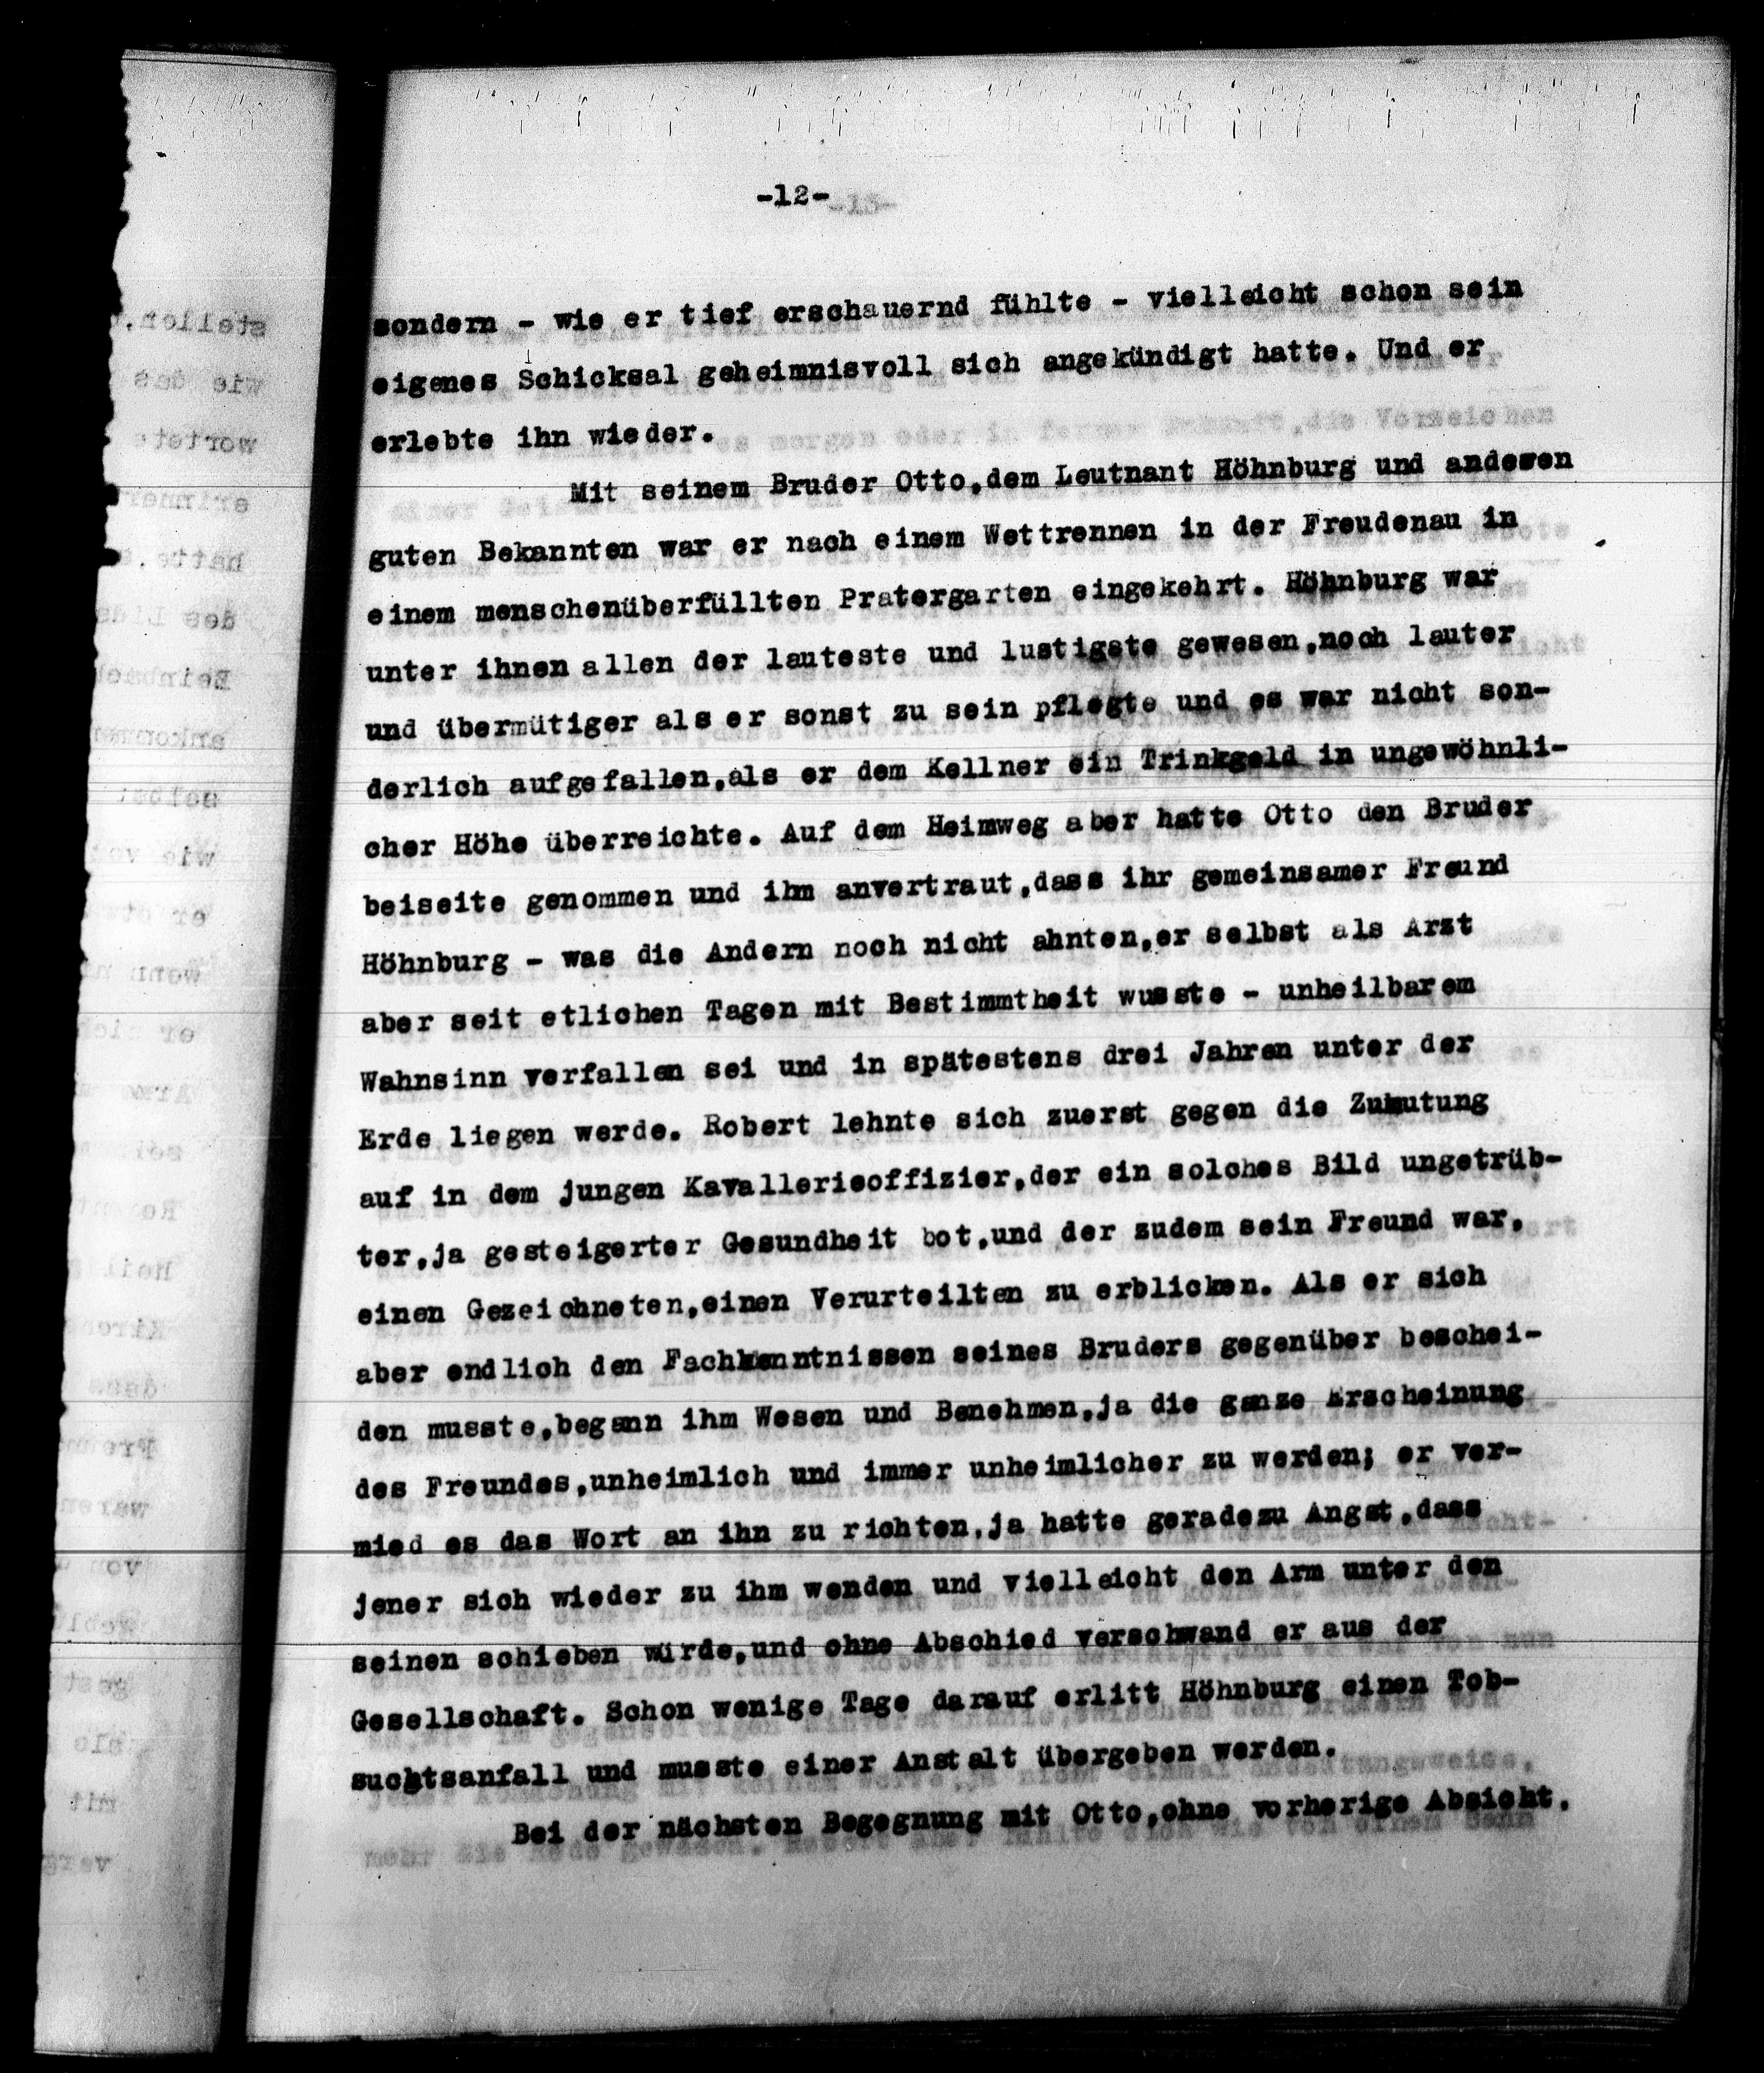 -12-
sondern - wie er tief erschauernd fühlte - vielleicht schon sein
eigenes Schicksal geheimnisvoll sich angekündigt hatte. Und er
erlebte ihn wieder.
Mit seinem Bruder Otto,dem Leutnant Höhnburg und anderen
guten Bekannten war er nach einem Wettrennen in der Freudenau in
einem menschenüberfüllten Pratergarten eingekehrt. Höhnburg war
unter ihnen allen der lauteste und lustigste gewesen,noch lauter
und übermütiger als er sonst zu sein pflegte und es war nicht son-
derlich aufgefallen,als er dem Kellner ein Trinkgeld in ungewöhnli-
cher Höhe überreichte. Auf dem Heimweg aber hatte Otto den Bruder
beiseite genommen und ihm anvertraut,dass ihr gemeinsamer Freund
Höhnburg - was die Andern noch nicht ahnten,er selbst als Arzt
aber seit etlichen Tagen mit Bestimmtheit wusste - unheilbarem
Wahnsinn verfallen sei und in spätestens drei Jahren unter der
Erde liegen werde. Robert lehnte sich zuerst gegen die Zumutung
auf in dem jungen Kavallerieoffizier,der ein solches Bild ungetrüb-
ter,ja gesteigerter Gesundheit bot,und der zudem sein Freund war,
einen Gezeichneten,einen Verurteilten zu erblicken. Als er sich
aber endlich den Fachkenntnissen seines Bruders gegenüber beschei-
den musste,begann ihm Wesen und Benehmen,ja die ganze Erscheinung
des Freundes,unheimlich und immer unheimlicher zu werden; er ver-
mied es das Wort an ihn zu richten,ja hatte geradezu Angst,dass
jener sich wieder zu ihm wenden und vielleicht den Arm unter den
seinen schieben würde,und ohne Abschied verschwand er aus der
Gesellschaft. Schon wenige Tage darauf erlitt Höhnburg einen Tob-
suchtsanfall und musste einer Anstalt übergeben werden.
Bei der nächsten Begegnung mit Otto,ohne vorherige Absicht,